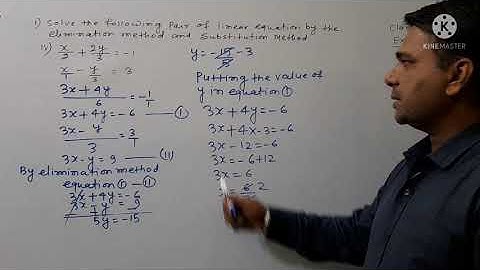 1) Solve the following Pair of linear equation by the
elimination method and Substitution Method
iv) x/2 + 2y/3 = -1
x - y/3 = 3
3x+4y/6 = -1/1
3x+4y = -6 —(I)
3x-y/3 = 3/1
3x-y = 9 —(II)
By elimination method
equation (I) - (II)
3x+4y = -6
3x - y = 9
5y = -15
y = -15/5 -3
Putting the value of
y in equation (I)
3x+4y = -6
3x+4x-3 = -6
3x-12 = -6
3x = -6+12
3x = 6
6 2
Cla
Ex
Made with
KINEMASTER